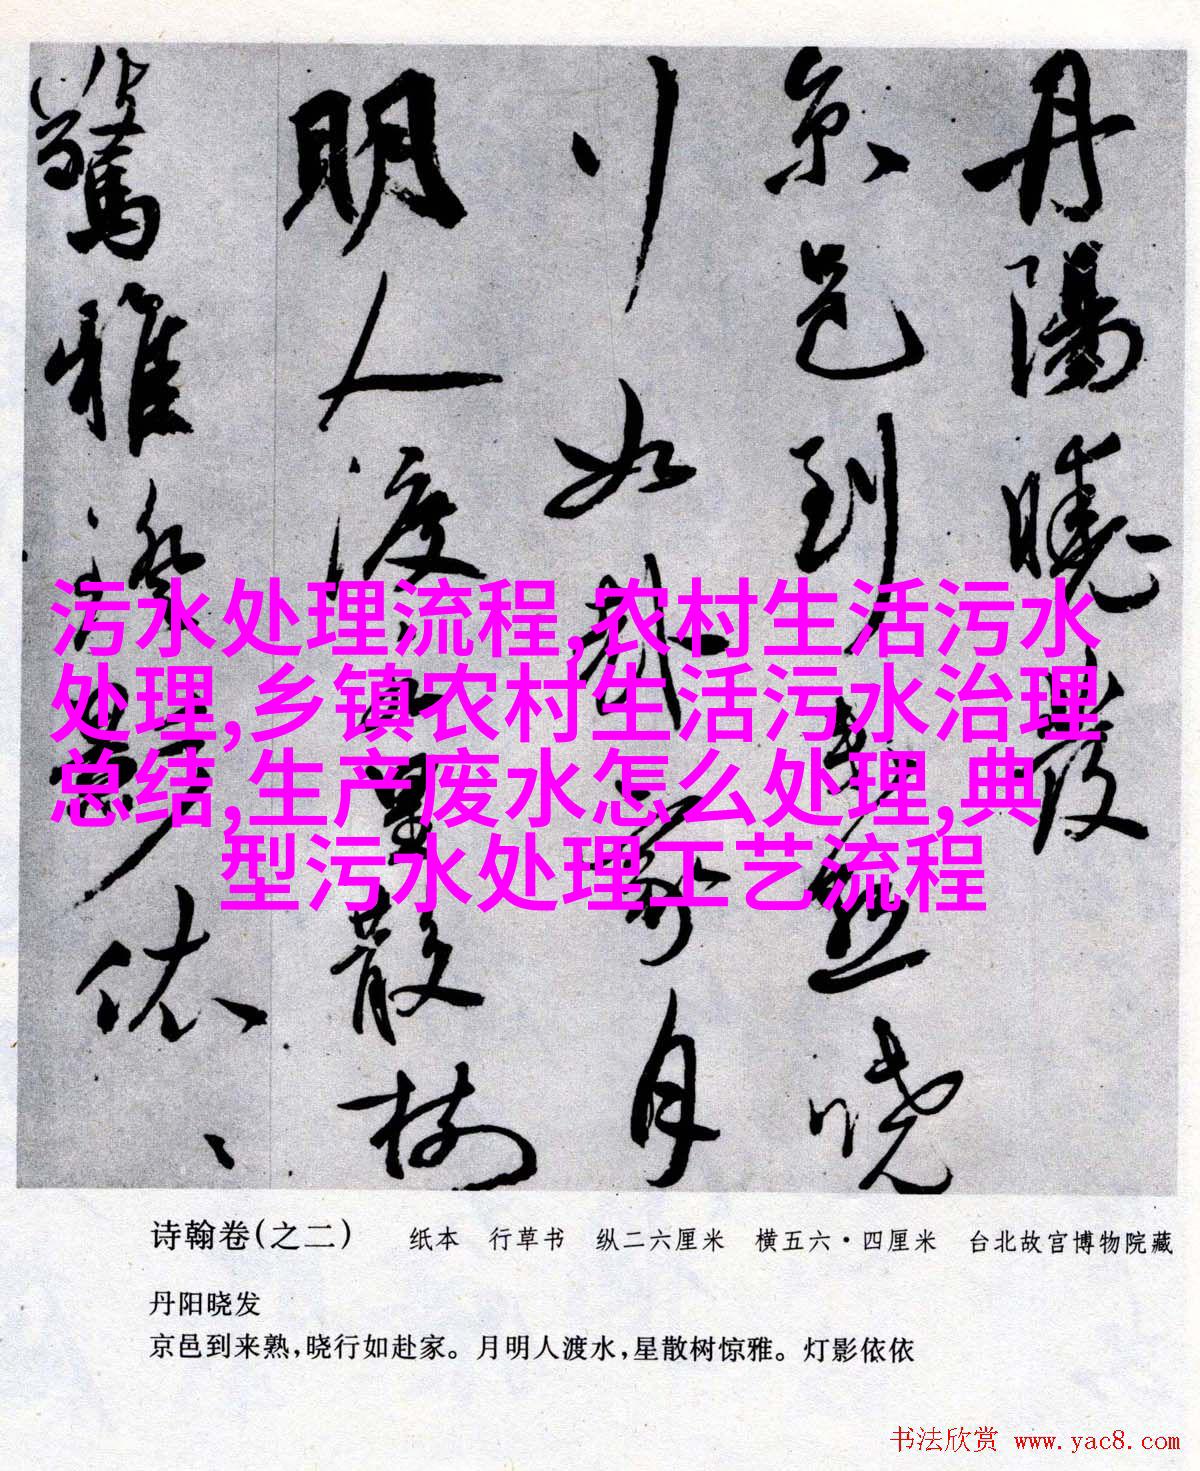 丹陽曉發
京邑到來熟曉
行如赴家月
明人渡水星散樹
驚雅燈影依依
污水处理流程,农村生活污水
处理,乡镇农村生活污水治理
总结,生产废水怎么处理,典
型污水处理工艺流程
诗翰卷(之二) 纸本 行草书 纵二六厘米 横五六·四厘米 台北故宫博物院藏
丹阳晓发
京邑到来熟,晓行如赴家。月明人渡水,星散树惊雅。灯影依依
书法欣赏 www.yac8.com